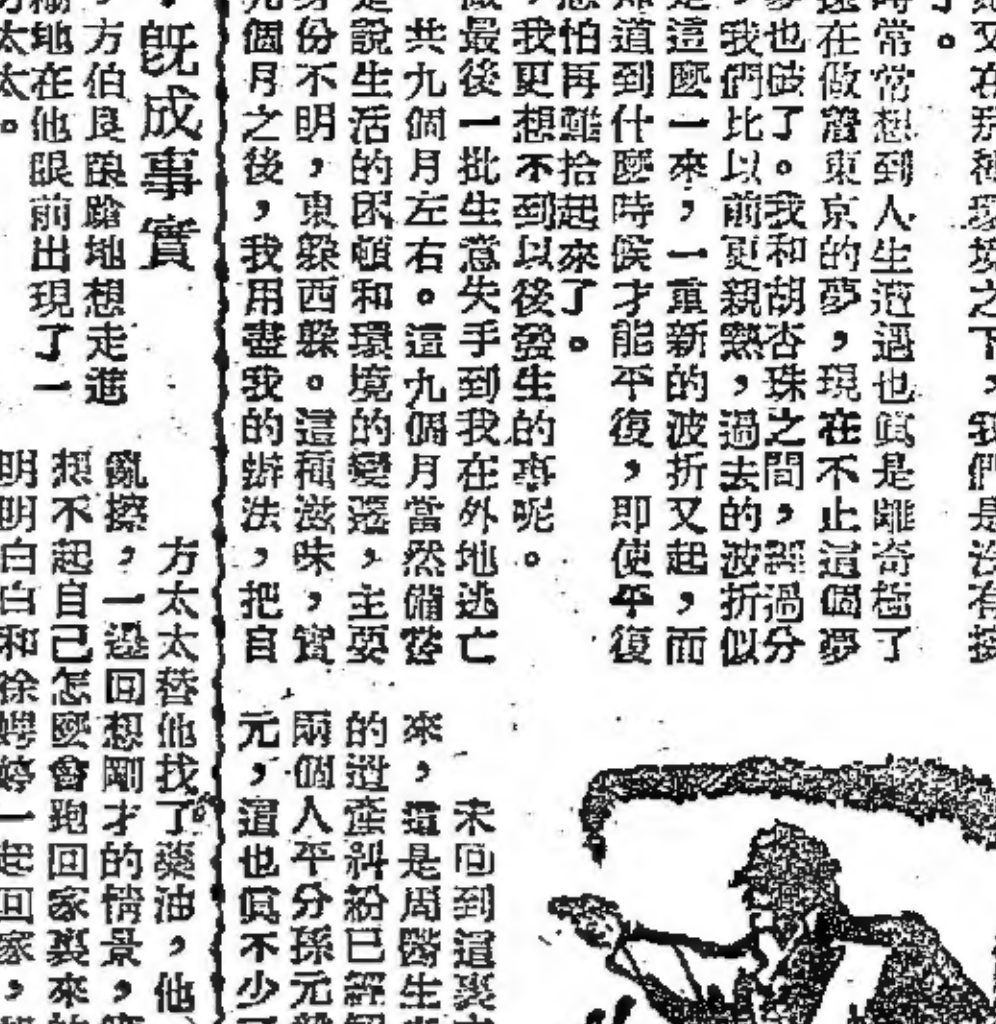 了。
時常常想到人生遭遇也眞是離奇極了
在做着東京的夢，現在不止這個夢
也破了。我和胡杏珠之間，過分
我們比以前更親熱，過去的波折似
是這麼一來，一重新的波折又起，而
知道到什麼時候才能平復，即使平復
恐怕再難拾起來了。
，我更想不到以後發生的事呢。
做最後一批生意失手到我在外地逃亡
共九個月左右。這九個月當然備嘗
是說生活的困頓和環境的變遷，主要
身份不明，東躱西躱。這種滋味，實
九個月之後，我用盡我的辦法，把自
未回到這裏
來，這是周醫生
的遺產糾紛已
兩個人平分孫元
元，這也眞不少
旣成事實
方伯良踉蹌地想走進
糊地在他眼前出現了一
方太太。
方太太替他找了藥油，他
亂擦，一邊回想剛才的情景，
想不起自己怎麼會跑回家裏來
明明白白和徐婷婷一起回家，